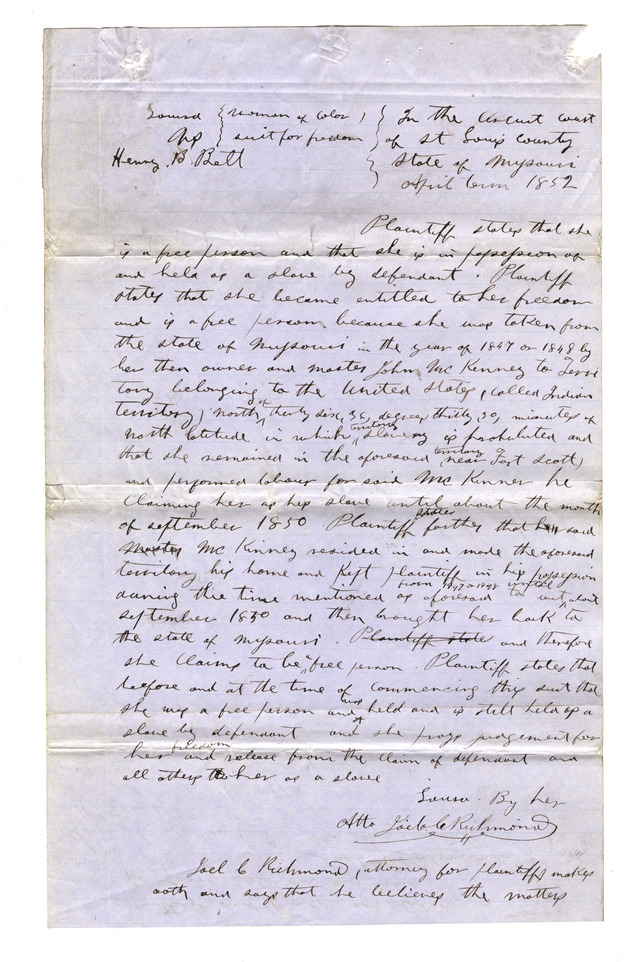 Louisa { woman of Color, } In the Circuit Court
vs { suit for freedom } of St Louis County
Henry B. Belt } State of Missouri
April term 1852
Plaintiff states that she
is a free person and that she is in possession of
and held as a slave by defendant. Plaintiff
states that she became entitled to her freedom
and is a free person, because she was taken from
the state of Missouri in the year of 1847 or 1848 by
her then owner and master John McKinney to Terri
tory belonging to the United States, (called Indian
territory) north of thirty six, 36, degrees thirty 30, minutes of
north latitude in which territory slavery is prohibited and
that she remained in the aforesaid territory (near Fort Scott)
and performed labour for said McKinney he
claiming her as his slave until about the month
of september 1850 Plaintiff states further that said
McKinney resided in and made the aforesaid
territory his home and kept plaintiff in his possession
during the time mentioned as aforesaid to wit from 1847 or 1848 until about
september 1850 and then brought her back to
the state of Missouri. Plaintiff state and therefore
she claims to be free person. Plaintiff states that
before and at the time of commencing this suit that
she was a free person and was held and is still held as a
slave by defendant and she prays judgement for
her freedom and release from the claim of defendant and
all others to her as a slave
Louisa By her
Atto Joel C Richmond
Joel C Richmond, attorney for plaintiff makes
oath and says that he believes the matters